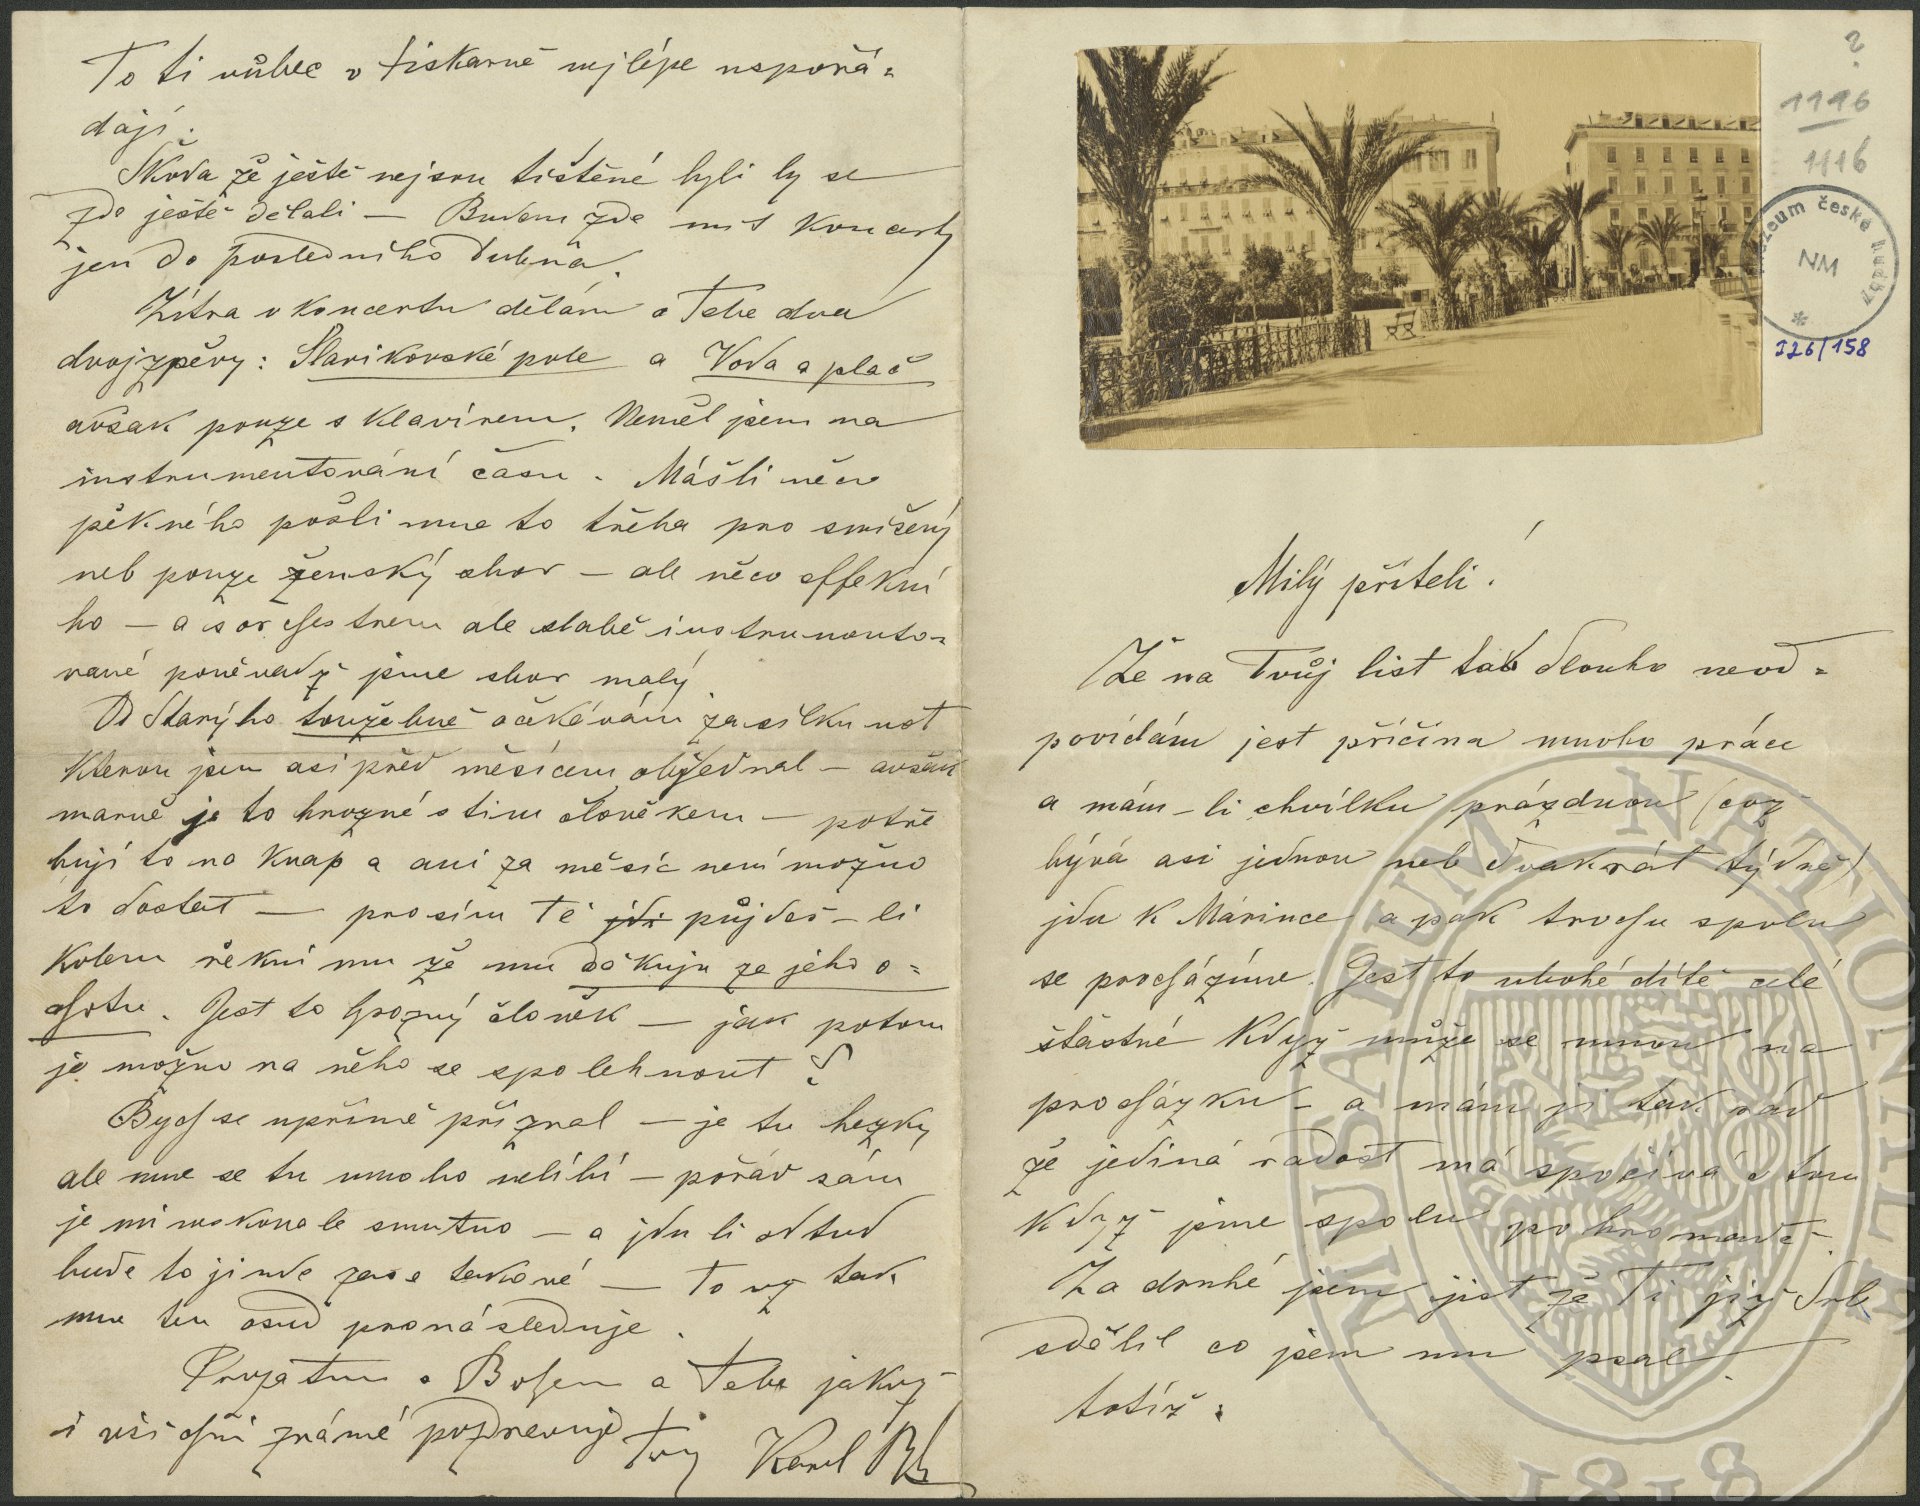 To ti vůbec v tiskarně nejlépe uspořá-
dají.
Škoda že ještě nejsou tištěné byli by se
zde ještě dělali — Budem zde mít koncerty
jen do posledního dubna.
Zítra v koncertu dělám o Tebe dva
dvojzpěvy: Slavikovské pole a Voda a pláč
avšak pouze s klavírem. Neměl jsem na
instrumentování času. Mášli něco
pěkného pošli mne to třeba pro smíšený
neb pouze ženský sbor — ale něco effekní
ho — a s orchestrem ale slabě instrumento-
vané poněvadž jsme sbor malý
Od Starýho toužebně očekávám zasilku not
kterou jsem asi před měsícem objednal — avšak
marně je to hrozné s tim člověkem — potře
bují to na knap a ani za měsíc není možno
to dostat — prosím Tě jdi půjdeš-li
kolem řekni mu že mu děkuju za jeho o-
chotu. Jest to hrozný člověk — jak potom
je možno na něho se spolehnout?
Bych se upřímě přiznal — je tu hezky
ale mne se tu mnoho nelíbí — pořád sám
je mi neskonale smutno — a jdu li odtud
bude to jinde zase takové — To už tak
mne ten osud pronásleduje.
Prozatím s Bohem a Tebe jakož
i všichni známé pozdravuje Tvůj Karel
?
1116
1116
Muzeum české hudby
NM
*
226/158
Milý příteli!
Že na Tvůj list tak dlouho neod-
povídám jest příčina mnoho práce
a mám-li chvílku prázdnou (což
bývá asi jednou neb dvakrát týdně)
jdu k Márince a pak trochu spolu
se procházíme. Jest to ubohé dítě celé
štastné když může se mnou na
procházku — a mám ji tak rád
že jediná radost má spočívá v tom
když jsme spolu po hromadě.
Za druhé jsem jist že Ti již Srb
sdělil co jsem mu psal
totiž:
MUSAEUM NATIONALE
1818